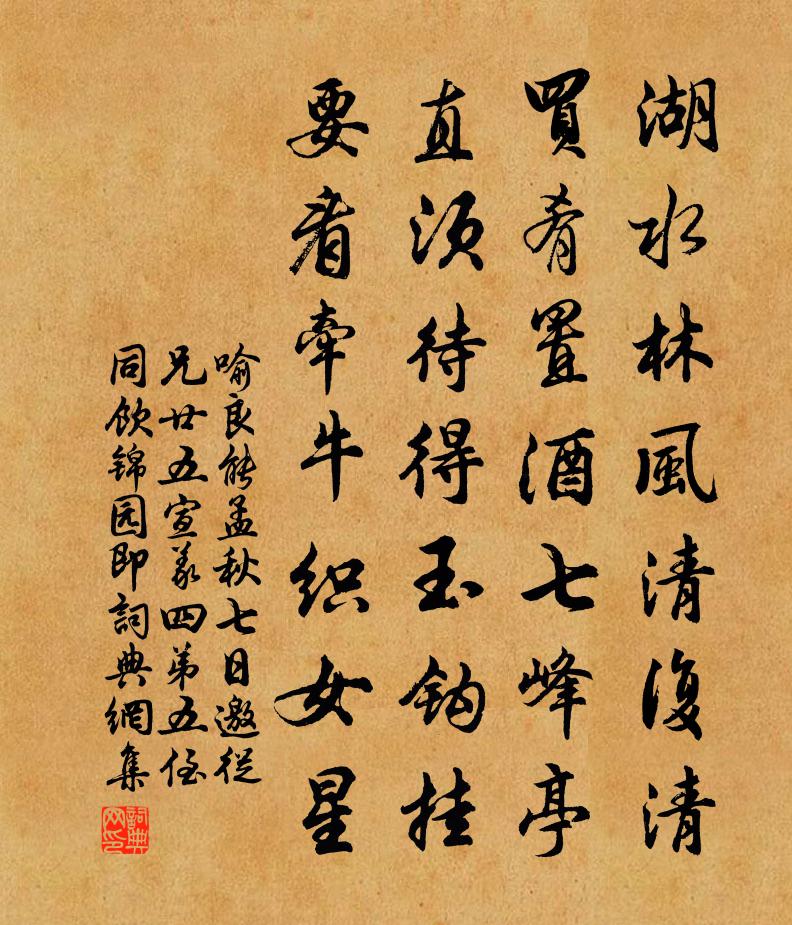 湖水林風清復清
買肴置酒七峰亭
直須待得玉鈎挂
要看牽牛织女星
喻良能孟秋七日邀從
兄廿五宣義四弟五侄
同飲锦园即詞典網集
詞典网印